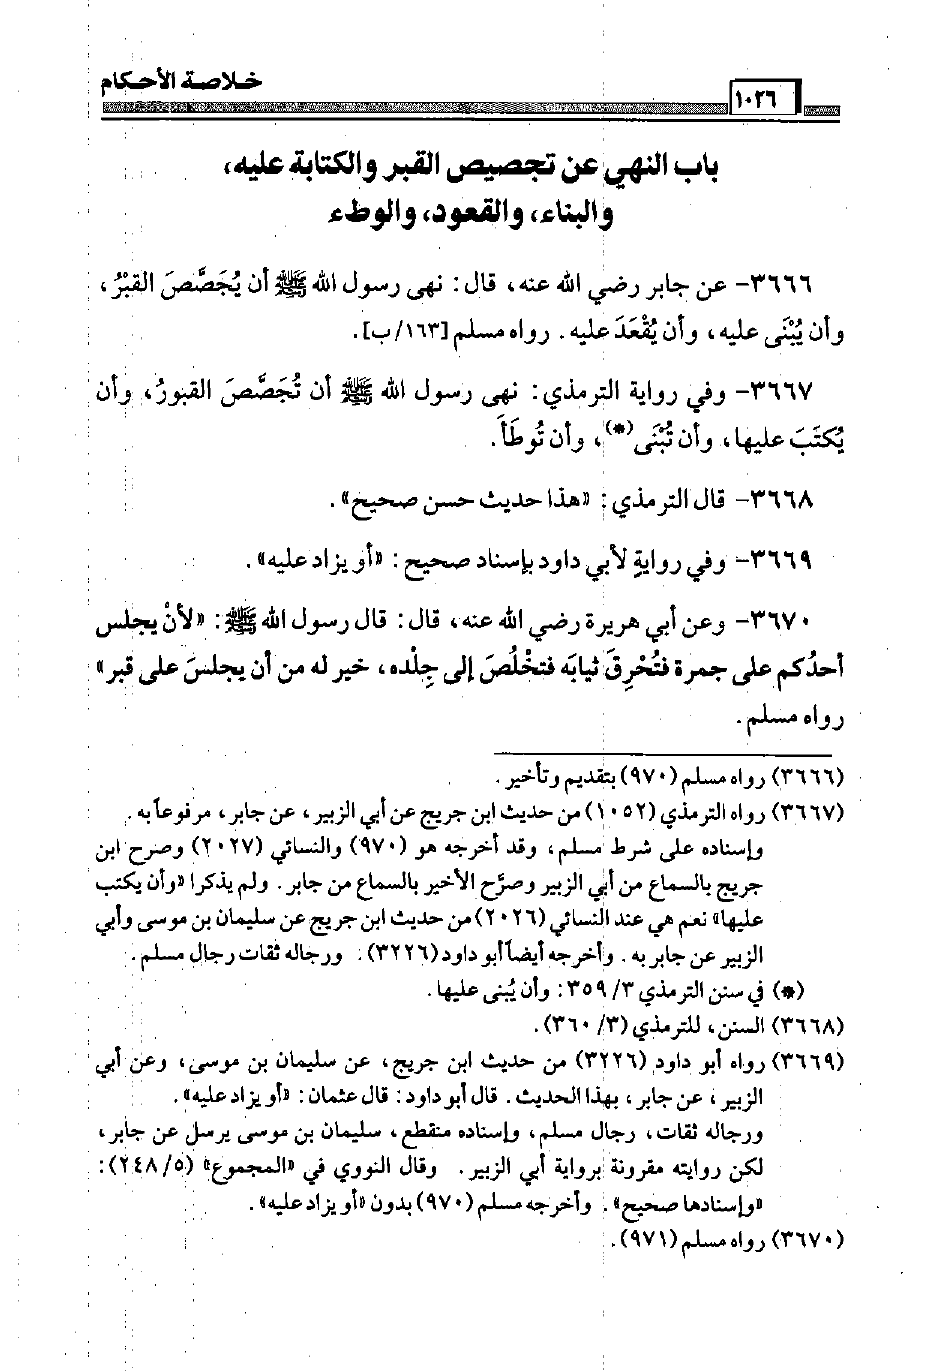 خلاصة الأحكام
١٠٢٦
باب النهي عن تجصيص القبر والكتابة عليه،
والبناء، والقعود، والوطء
٣٦٦٦- عن جابر رضي الله عنه، قال: نهى رسول الله ﷺ أن يُجَصَّصَ القبْرُ،
وأن يُبْنَى عليه، وأن يُقْعَدَ عليه. رواه مسلم [١٦٣/ب].
٣٦٦٧- وفي رواية الترمذي: نهى رسول الله ﷺ أن تُجَصَّصَ القبورُ، وأن
يُكتَبَ عليها، وأن تُبْنَى(*)، وأن تُوطَأَ.
٣٦٦٨- قال الترمذي: «هذا حديث حسن صحيح».
٣٦٦٩- وفي روايةٍ لأبي داود بإسناد صحيح: «أو يزاد عليه».
٣٦٧٠- وعن أبي هريرة رضي الله عنه، قال: قال رسول الله ﷺ: «لأنْ يجلس
أحدُكم على جمرة فتُحْرِقَ ثيابَه فتخْلُصَ إلى جِلْده، خير له من أن يجلسَ على قبر»
رواه مسلم.
(٣٦٦٦) رواه مسلم (٩٧٠) بتقديم وتأخير.
(٣٦٦٧) رواه الترمذي (١٠٥٢) من حديث ابن جريج عن أبي الزبير، عن جابر، مرفوعاً به.
وإسناده على شرط مسلم، وقد أخرجه هو (٩٧٠) والنسائي (٢٠٢٧) وصرح ابن
جريج بالسماع من أبي الزبير وصرَّح الأخير بالسماع من جابر. ولم يذكرا «وأن يكتب
عليها» نعم هي عند النسائي (٢٠٢٦) من حديث ابن جريج عن سليمان بن موسى وأبي
الزبير عن جابر به. وأخرجه أيضاً أبو داود (٣٢٢٦). ورجاله ثقات رجال مسلم.
(*) في سنن الترمذي ٣/ ٣٥٩: وأن يُبنى عليها.
(٣٦٦٨) السنن، للترمذي (٣/ ٣٦٠).
(٣٦٦٩) رواه أبو داود (٣٢٢٦) من حديث ابن جريج، عن سليمان بن موسى، وعن أبي
الزبير، عن جابر، بهذا الحديث. قال أبو داود: قال عثمان: «أو يزاد عليه».
ورجاله ثقات، رجال مسلم، وإسناده منقطع، سليمان بن موسى يرسل عن جابر،
لكن روايته مقرونة برواية أبي الزبير. وقال النووي في «المجموع» (٥/ ٢٤٨):
«وإسنادها صحيح». وأخرجه مسلم (٩٧٠) بدون «أو يزاد عليه».
(٣٦٧٠) رواه مسلم (٩٧١).